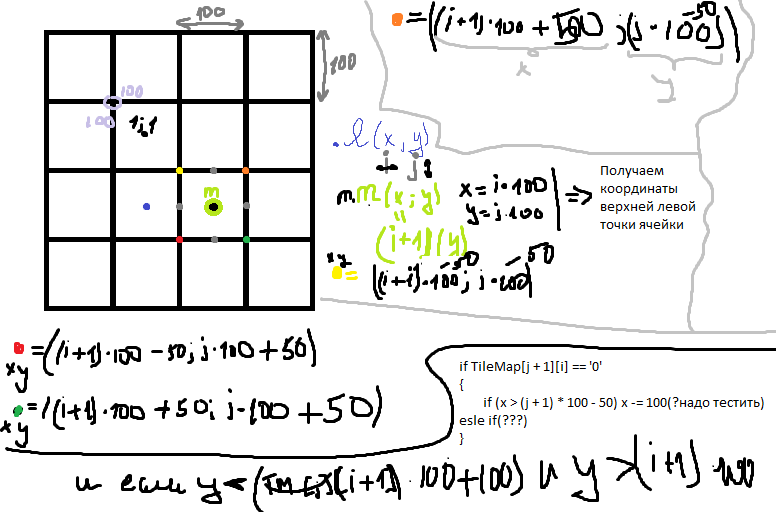 100
100
100
100
1;1
m
= ((i+1)·100 + 50 ; (j·100-50))
x
y
l(x,y)
i j
m m(x;y)
(i+1)(y)
x = i·100
y = j·100
=>
Получаем
координаты
верхней левой
точки ячейки
xy = ((i+i)·100-50; j·100-50)
xy = ((i+1)·100 - 50; j·100 + 50)
xy = ((i+1)·100 + 50; j·100 + 50)
if TileMap[j + 1][i] == '0'
{
if (x > (j + 1) * 100 - 50) x -= 100(?надо тестить)
esle if(???)
}
и если y < ([i+1]·100+100) и y > (i+1) 100